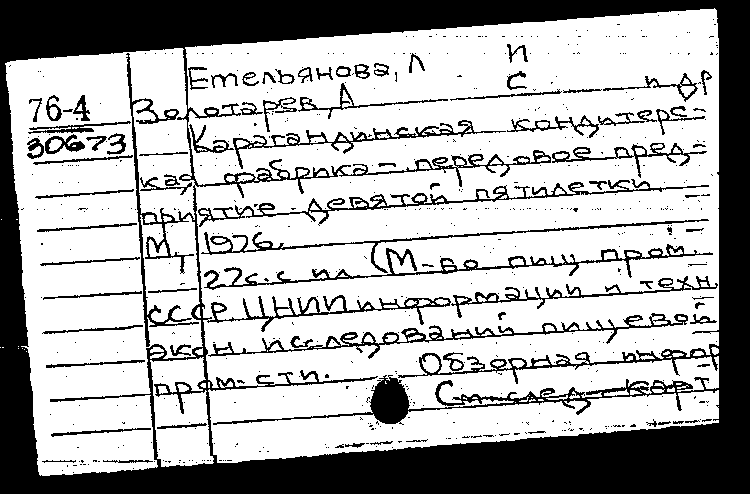 Емельянова, Л И
76-4 Золотарев, А С и др
30673 Карагандинская кондитерс=
кая фабрика - передовое пред=
приятие девятой пятилетки. =
М., 1976. =
27с. с ил (М-во пищ пром.
СССР. ЦНИИ информации и техн
экон. исследований пищевой
пром-сти. Обзорная инфор
См след. карт.